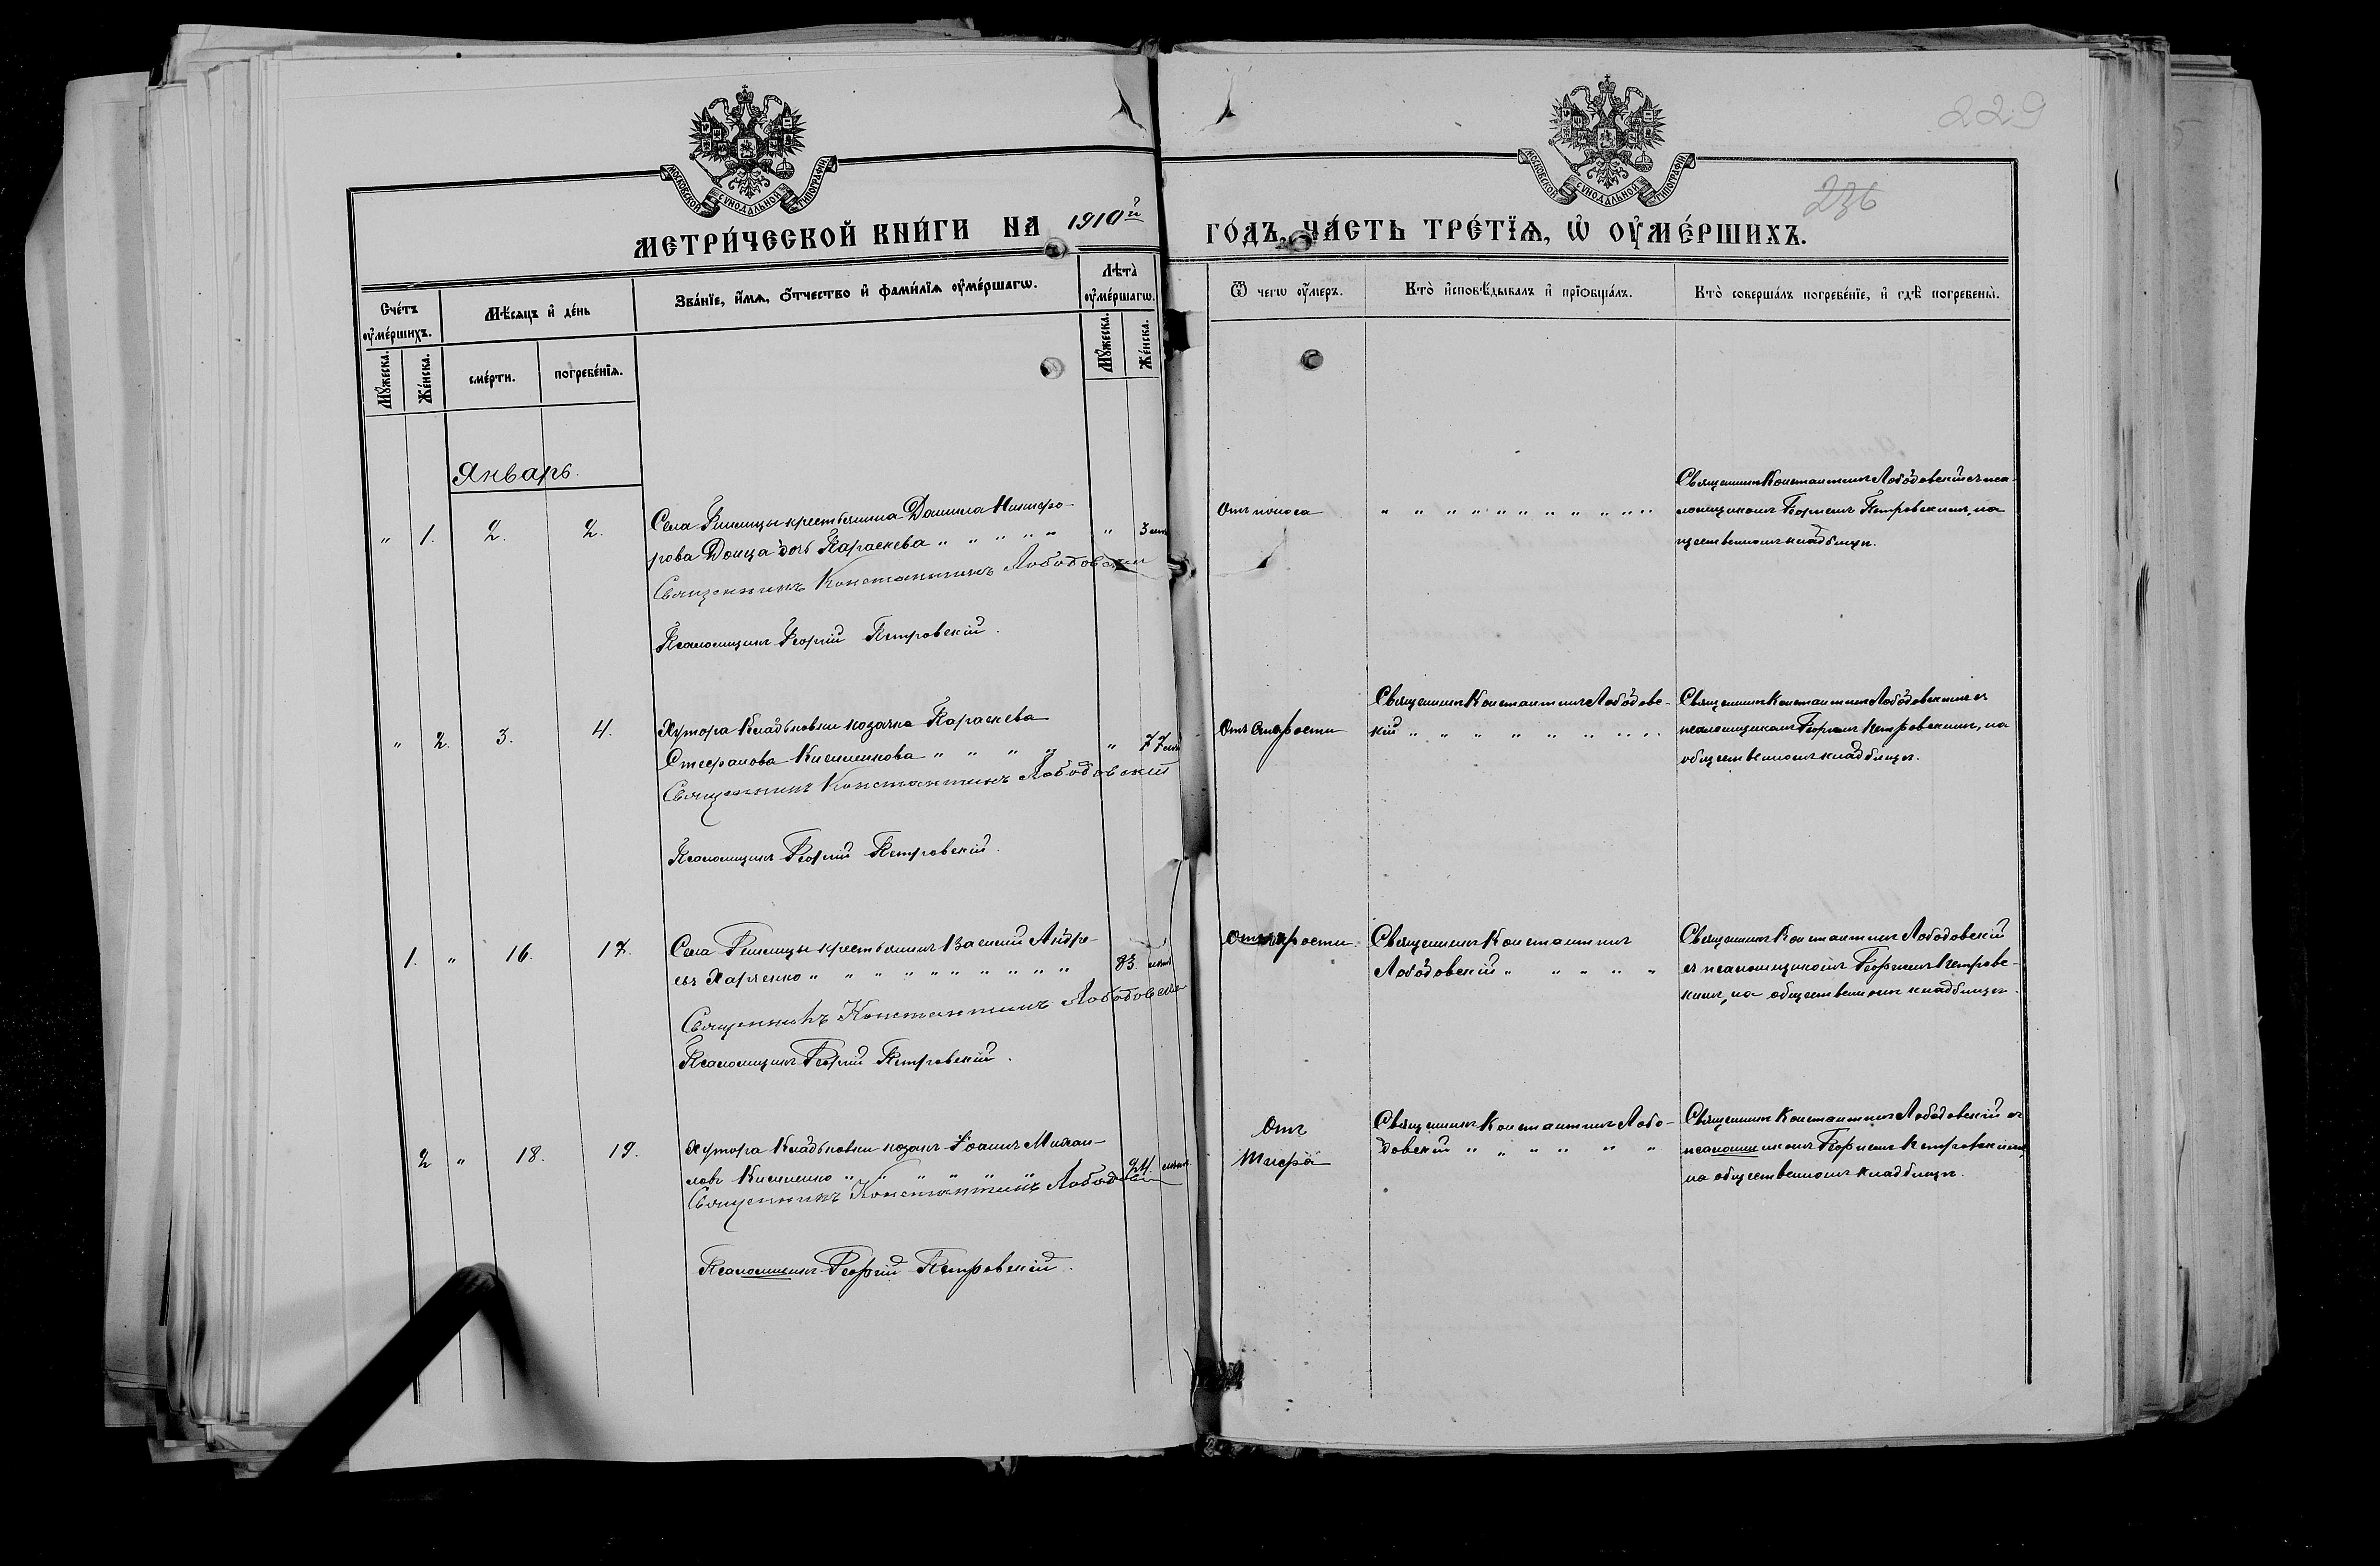 229
236
МОСКОВСКОЙ СѴНОДАЛЬНОЙ ТИПОГРАФІИ
МОСКОВСКОЙ СѴНОДАЛЬНОЙ ТИПОГРАФІИ
МЕТРИ́ЧЕСКОЙ КНИ́ГИ НА 1910й
ГО́ДЪ, ЧА́СТЬ ТРЕ́ТЇѦ, Ѡ҆ ОУ҆МЕ́РШИХЪ.
Сче́тъ оу҆ме́ршихъ.
Мѣ́сѧцъ и҆ де́нь
Зва́нїе, и҆́мѧ, ѻ҆́тчество и҆ фами́лїѧ оу҆ме́ршагѡ.
Лѣта̀ оу҆ме́ршагѡ.
Мꙋ́жеска.
Же́нска.
сме́рти.
погребе́нїѧ.
Мꙋ́жеска.
Же́нска.
Ѿ чегѡ̀ оу҆́меръ.
Кто̀ и҆сповѣ́дывалъ и҆ прїѡбща́лъ.
Кто̀ соверша́лъ погребе́нїе, и҆ гдѣ̀ погребены̀.
Январь.
" 1. 2. 2.
Села крестьянина Даниила Никифо-
рова Донца дочь Параскева " " " " "
" 3
Священникъ Константинъ Лободовскій
Псаломщикъ Георгій Петровскій.
Отъ поноса
" " " " " " " " " " " "
Священникъ Константинъ Лободовскій съ пса-
ломщикомъ Георгіемъ Петровскимъ, на
щественномъ кладбищѣ.
" 2. 3. 4.
Хутора козачка Параскева
Стефанова " " " "
" 77 лѣтъ
Священникъ Константинъ Лободовскій
Псаломщикъ Георгій Петровскій.
Отъ старости
Священникъ Константинъ Лободовс-
кій " " " " " " " " "
Священникъ Константинъ Лободовскій съ
псаломщикомъ Георгіемъ Петровскимъ, на
общественномъ кладбищѣ.
1. " 16. 17.
Села крестьянинъ Василій Андре-
евъ Харченко " " " " " " " " "
83. лѣтъ
Священникъ Константинъ Лободовскій
Псаломщикъ Георгій Петровскій.
Отъ старости.
Священникъ Константинъ
Лободовскій " " " " "
Священникъ Константинъ Лободовскій
съ псаломщикомъ Георгіемъ Петровс-
кимъ, на общественномъ кладбищѣ.
2 " 18. 19.
Хутора козакъ Іоаннъ Михаи-
ловъ " " " " "
лѣтъ.
Священникъ Константинъ Лободовскій
Псаломщикъ Георгій Петровскій.
Отъ
Тифа
Священникъ Константинъ Лобо-
довскій " " " " " "
Священникъ Константинъ Лободовскій съ
псаломщикомъ Георгіемъ Петровскимъ
на общественномъ кладбищѣ.